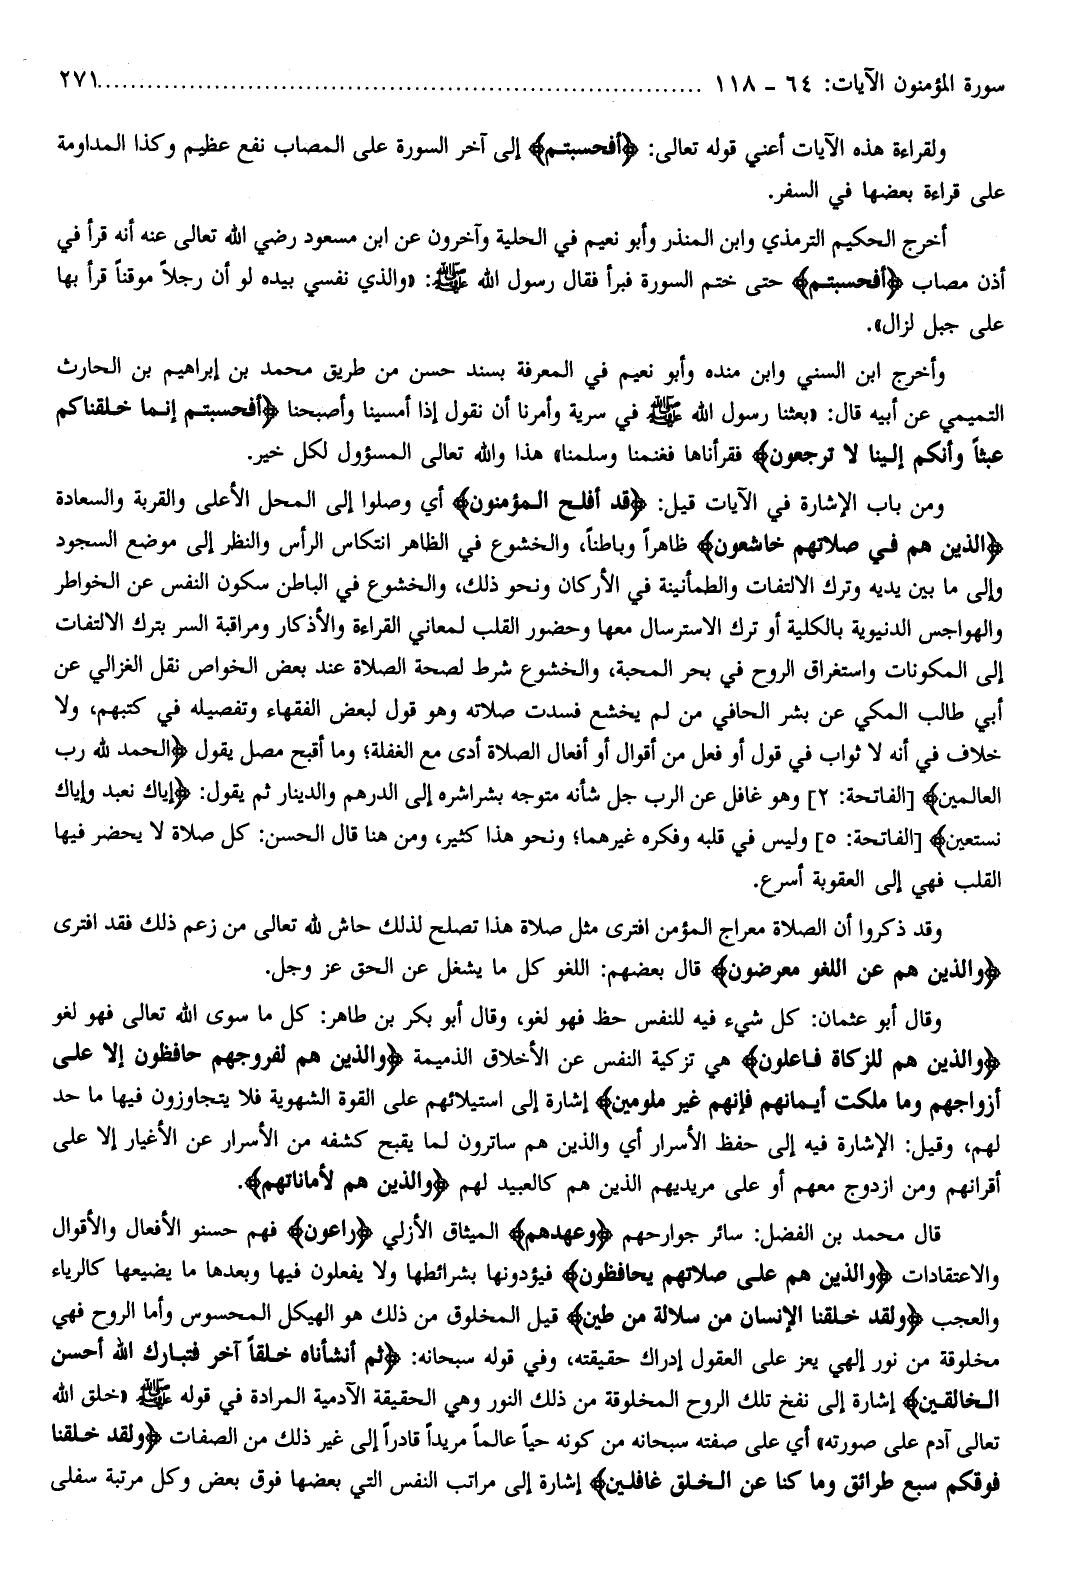 سورة المؤمنون الآيات: ٦٤ - ١١٨ ........................................................................ ٢٧١
ولقراءة هذه الآيات أعني قوله تعالى: ﴿أفحسبتم﴾ إلى آخر السورة على المصاب نفع عظيم وكذا المداومة
على قراءة بعضها في السفر.
أخرج الحكيم الترمذي وابن المنذر وأبو نعيم في الحلية وآخرون عن ابن مسعود رضي الله تعالى عنه أنه قرأ في
أذن مصاب ﴿أفحسبتم﴾ حتى ختم السورة فبرأ فقال رسول الله ﷺ: «والذي نفسي بيده لو أن رجلاً موقناً قرأ بها
على جبل لزال».
وأخرج ابن السني وابن منده وأبو نعيم في المعرفة بسند حسن من طريق محمد بن إبراهيم بن الحارث
التميمي عن أبيه قال: «بعثنا رسول الله ﷺ في سرية وأمرنا أن نقول إذا أمسينا وأصبحنا ﴿أفحسبتم إنما خلقناكم
عبثاً وأنكم إلينا لا ترجعون﴾ فقرأناها فغنمنا وسلمنا» هذا والله تعالى المسؤول لكل خير.
ومن باب الإشارة في الآيات قيل: ﴿قد أفلح المؤمنون﴾ أي وصلوا إلى المحل الأعلى والقربة والسعادة
﴿الذين هم في صلاتهم خاشعون﴾ ظاهراً وباطناً، والخشوع في الظاهر انتكاس الرأس والنظر إلى موضع السجود
وإلى ما بين يديه وترك الالتفات والطمأنينة في الأركان ونحو ذلك، والخشوع في الباطن سكون النفس عن الخواطر
والهواجس الدنيوية بالكلية أو ترك الاسترسال معها وحضور القلب لمعاني القراءة والأذكار ومراقبة السر بترك الالتفات
إلى المكونات واستغراق الروح في بحر المحبة، والخشوع شرط لصحة الصلاة عند بعض الخواص نقل الغزالي عن
أبي طالب المكي عن بشر الحافي من لم يخشع فسدت صلاته وهو قول لبعض الفقهاء وتفصيله في كتبهم، ولا
خلاف في أنه لا ثواب في قول أو فعل من أقوال أو أفعال الصلاة أدى مع الغفلة؛ وما أقبح مصل يقول ﴿الحمد لله رب
العالمين﴾ [الفاتحة: ٢] وهو غافل عن الرب جل شأنه متوجه بشراشره إلى الدرهم والدينار ثم يقول: ﴿إياك نعبد وإياك
نستعين﴾ [الفاتحة: ٥] وليس في قلبه وفكره غيرهما؛ ونحو هذا كثير، ومن هنا قال الحسن: كل صلاة لا يحضر فيها
القلب فهي إلى العقوبة أسرع.
وقد ذكروا أن الصلاة معراج المؤمن افترى مثل صلاة هذا تصلح لذلك حاش لله تعالى من زعم ذلك فقد افترى
﴿والذين هم عن اللغو معرضون﴾ قال بعضهم: اللغو كل ما يشغل عن الحق عز وجل.
وقال أبو عثمان: كل شيء فيه للنفس حظ فهو لغو، وقال أبو بكر بن طاهر: كل ما سوى الله تعالى فهو لغو
﴿والذين هم للزكاة فاعلون﴾ هي تزكية النفس عن الأخلاق الذميمة ﴿والذين هم لفروجهم حافظون إلا على
أزواجهم وما ملكت أيمانهم فإنهم غير ملومين﴾ إشارة إلى استيلائهم على القوة الشهوية فلا يتجاوزون فيها ما حد
لهم، وقيل: الإشارة فيه إلى حفظ الأسرار أي والذين هم ساترون لما يقبح كشفه من الأسرار عن الأغيار إلا على
أقرانهم ومن ازدوج معهم أو على مريديهم الذين هم كالعبيد لهم ﴿والذين هم لأماناتهم﴾.
قال محمد بن الفضل: سائر جوارحهم ﴿وعهدهم﴾ الميثاق الأزلي ﴿راعون﴾ فهم حسنو الأفعال والأقوال
والاعتقادات ﴿والذين هم على صلاتهم يحافظون﴾ فيؤدونها بشرائطها ولا يفعلون فيها وبعدها ما يضيعها كالرياء
والعجب ﴿ولقد خلقنا الإنسان من سلالة من طين﴾ قيل المخلوق من ذلك هو الهيكل المحسوس وأما الروح فهي
مخلوقة من نور إلهي يعز على العقول إدراك حقيقته، وفي قوله سبحانه: ﴿ثم أنشأناه خلقاً آخر فتبارك الله أحسن
الخالقين﴾ إشارة إلى نفخ تلك الروح المخلوقة من ذلك النور وهي الحقيقة الآدمية المرادة في قوله ﷺ «خلق الله
تعالى آدم على صورته» أي على صفته سبحانه من كونه حياً عالماً مريداً قادراً إلى غير ذلك من الصفات ﴿ولقد خلقنا
فوقكم سبع طرائق وما كنا عن الخلق غافلين﴾ إشارة إلى مراتب النفس التي بعضها فوق بعض وكل مرتبة سفلى